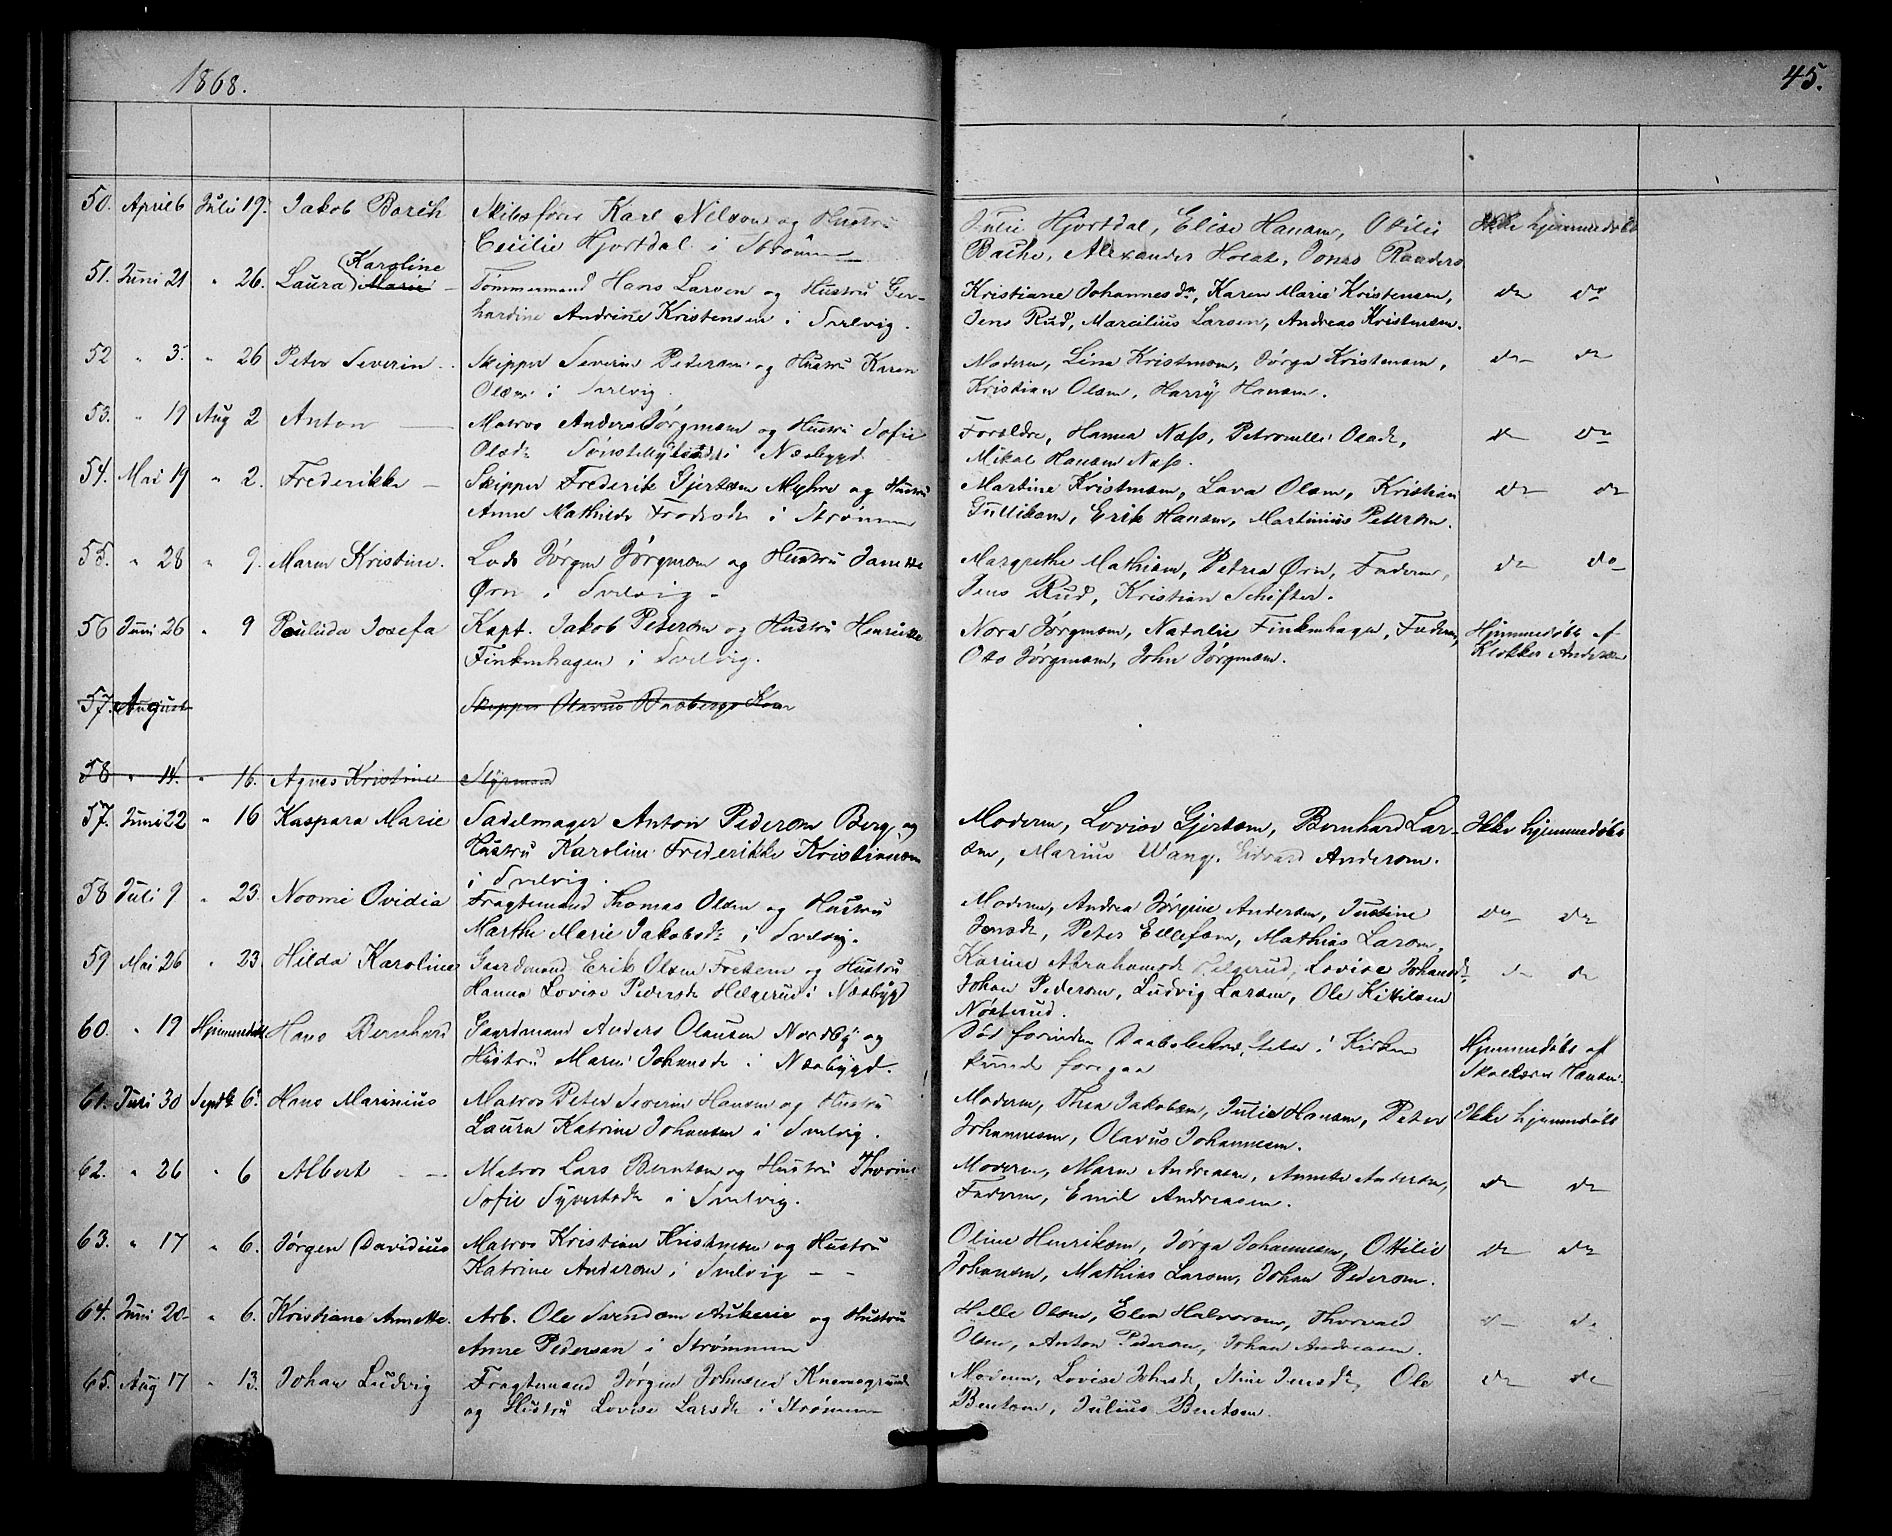 1868.
45.
50. April 6 Juli 19. Jakob Borch Skibsfører Karl Nilsen og Hustru
Cecilie Hjortdal i Strømm
Julie Hjortdal, Elise Hansen, Otilie Ikke hjemmedøbt
Bache, Alexander Holst, Jonas Randers
51. Juni 21 " 26. Laura Karoline Marie Tømmermand Hans Larsen og Hustru Ger-
hardine Andrine Kristensen i Svelvig.
Kristiane Johannesdr, Karen Marie Kristensen, do do
Jens Rud, Marcilius Larsen, Andreas Kristensen.
52 " 3. " 26 Peter Severin Skipper Severin Pedersen og Hustru Karen
Olsen i Svelvig.
Moderen, Lina Kristensen, Jørga Kristensen, do do
Kristian Olsen, Harry Hansen.
53. " 19 Aug 2 Anton Matros Anders Jørgensen og Hustru Sofie
Olsdr i Nesbygd
Forældre, Hanna Næss, Petronelle Olsdr, do do
Mikal Hansen Næss.
54. Mai 19 " 2. Frederikke Skipper Frederik Gjertsen Myhre og Hustru
Anne Mathilde Frodesdr i Strømm
Martine Kristensen, Lava Olsen, Kristian do do
Gulliksen, Erik Hansen, Martinius Petersen.
55. " 28 " 9. Maren Kristine. Lods Jørgen Jørgensen og Hustru Janette
Ørn i Svelvig
Margrethe Mathisen, Petrea Ørn, Faderen, do do
Jens Rud, Kristian Schifter.
56 Juni 26 " 9 Pauluda Josefa Kapt. Jakob Petersen og Hustru Henrikke
Finkenhagen i Svelvig.
Nora Jørgensen, Natalie Finkenhagen, Faderen, Hjemmedøbt af
Oto Jørgensen, John Jørgensen. Klokker Andersen
57. August Skipper Olavus Kone
58 " 14. " 16. Agnes Kristine Styrmand
57. Juni 22 " 16 Kaspara Marie Sadelmager Anton Pedersen Berg og
Hustru Karoline Frederikke Kristiansen
i Svelvig.
Moderen, Lovise Gjertsen, Bernhard Lar- Ikke hjemmedøbt
sen, Marius Wang, Edvard Andersen.
58 Juli 9 " 23. Noomi Ovidia Fragtemand Thomas Olsen og Hustru
Marthe Marie Jakobsdr i Svelvig.
Moderen, Andrea Jørgine Andersen, Justine do do
Jensdr, Peter Ellefsen, Mathias Larsen.
59 Mai 26 " 23. Hilda Karoline Gaardmand Erik Olsen Fretem og Hustru
Hanna Lovise Pedersdr Helgerud i Nesbygd
Karine Abrahamsdr Helgerud, Lovise Johansdr do do
Johan Pedersen, Ludvig Larsen, Ole Kittilsen
Nøsterud.
60. " 19 Hjemmedøbt Hans Bernhard Gaardmand Anders Olausen Nordby og
Hustru Maren Johansdr i Nesbygd.
Død forinden Daabsbekræftelse i Kirken Hjemmedøbt af
kunde foregaa Skolelærer Hansen.
61. Juni 30 Septbr 6. Hans Marinius Matros Peter Severin Hansen og Hustru
Laura Katrine Johansen i Svelvig.
Moderen, Thea Jakobsen, Julie Hansen, Peter Ikke hjemmedøbt
Johannesen, Olavus Johannesen.
62. " 26 " 6 Albert Matros Lars Berntsen og Hustru Thorine
Sofie Syvertsdr i Svelvig.
Moderen, Maren Andreasen, Annete Andersen, do do
Faderen, Emil Andreasen.
63. " 17 " 6. Jørgen Davidius Matros Kristian Kristensen og Hustru
Katrine Andersen i Svelvig
Oline Henriksen, Jørga Johannesen, Ottilie do do
Johansen, Mathias Larsen, Johan Pedersen.
64. Juni 20 " 6. Kristiane Annette. Arb. Ole Svendsen Aukerie og Hustru
Anne Pedersen i Strømmen
Helle Olsen, Elen Halvorsen, Thorvald do do
Olsen, Anton Pedersen, Johan Andreasen.
65. Aug 17 " 13. Johan Ludvig Fragtemand Jørgen Johnsen
og Hustru Lovise Larsdr i Strømm
Moderen, Lovise Johnsdr, Nine Jensdr, Ole do do
Bentsen, Julius Bentsen.